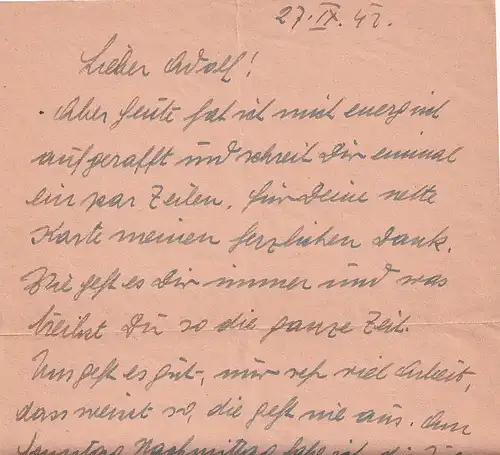 27. IX. 42.
Lieber Adolf!
Aber heute hab ich mich energisch
aufgerafft und schreib Dir einmal
ein par Zeilen. Für Deine nette
Karte meinen herzlichen Dank.
Wie geht es Dir immer und was
treibst Du so die ganze Zeit.
Uns geht es gut, nur sehr viel Arbeit,
dass weist so, die geht nie aus. Am
Sonntag Nachmittag habe ich die